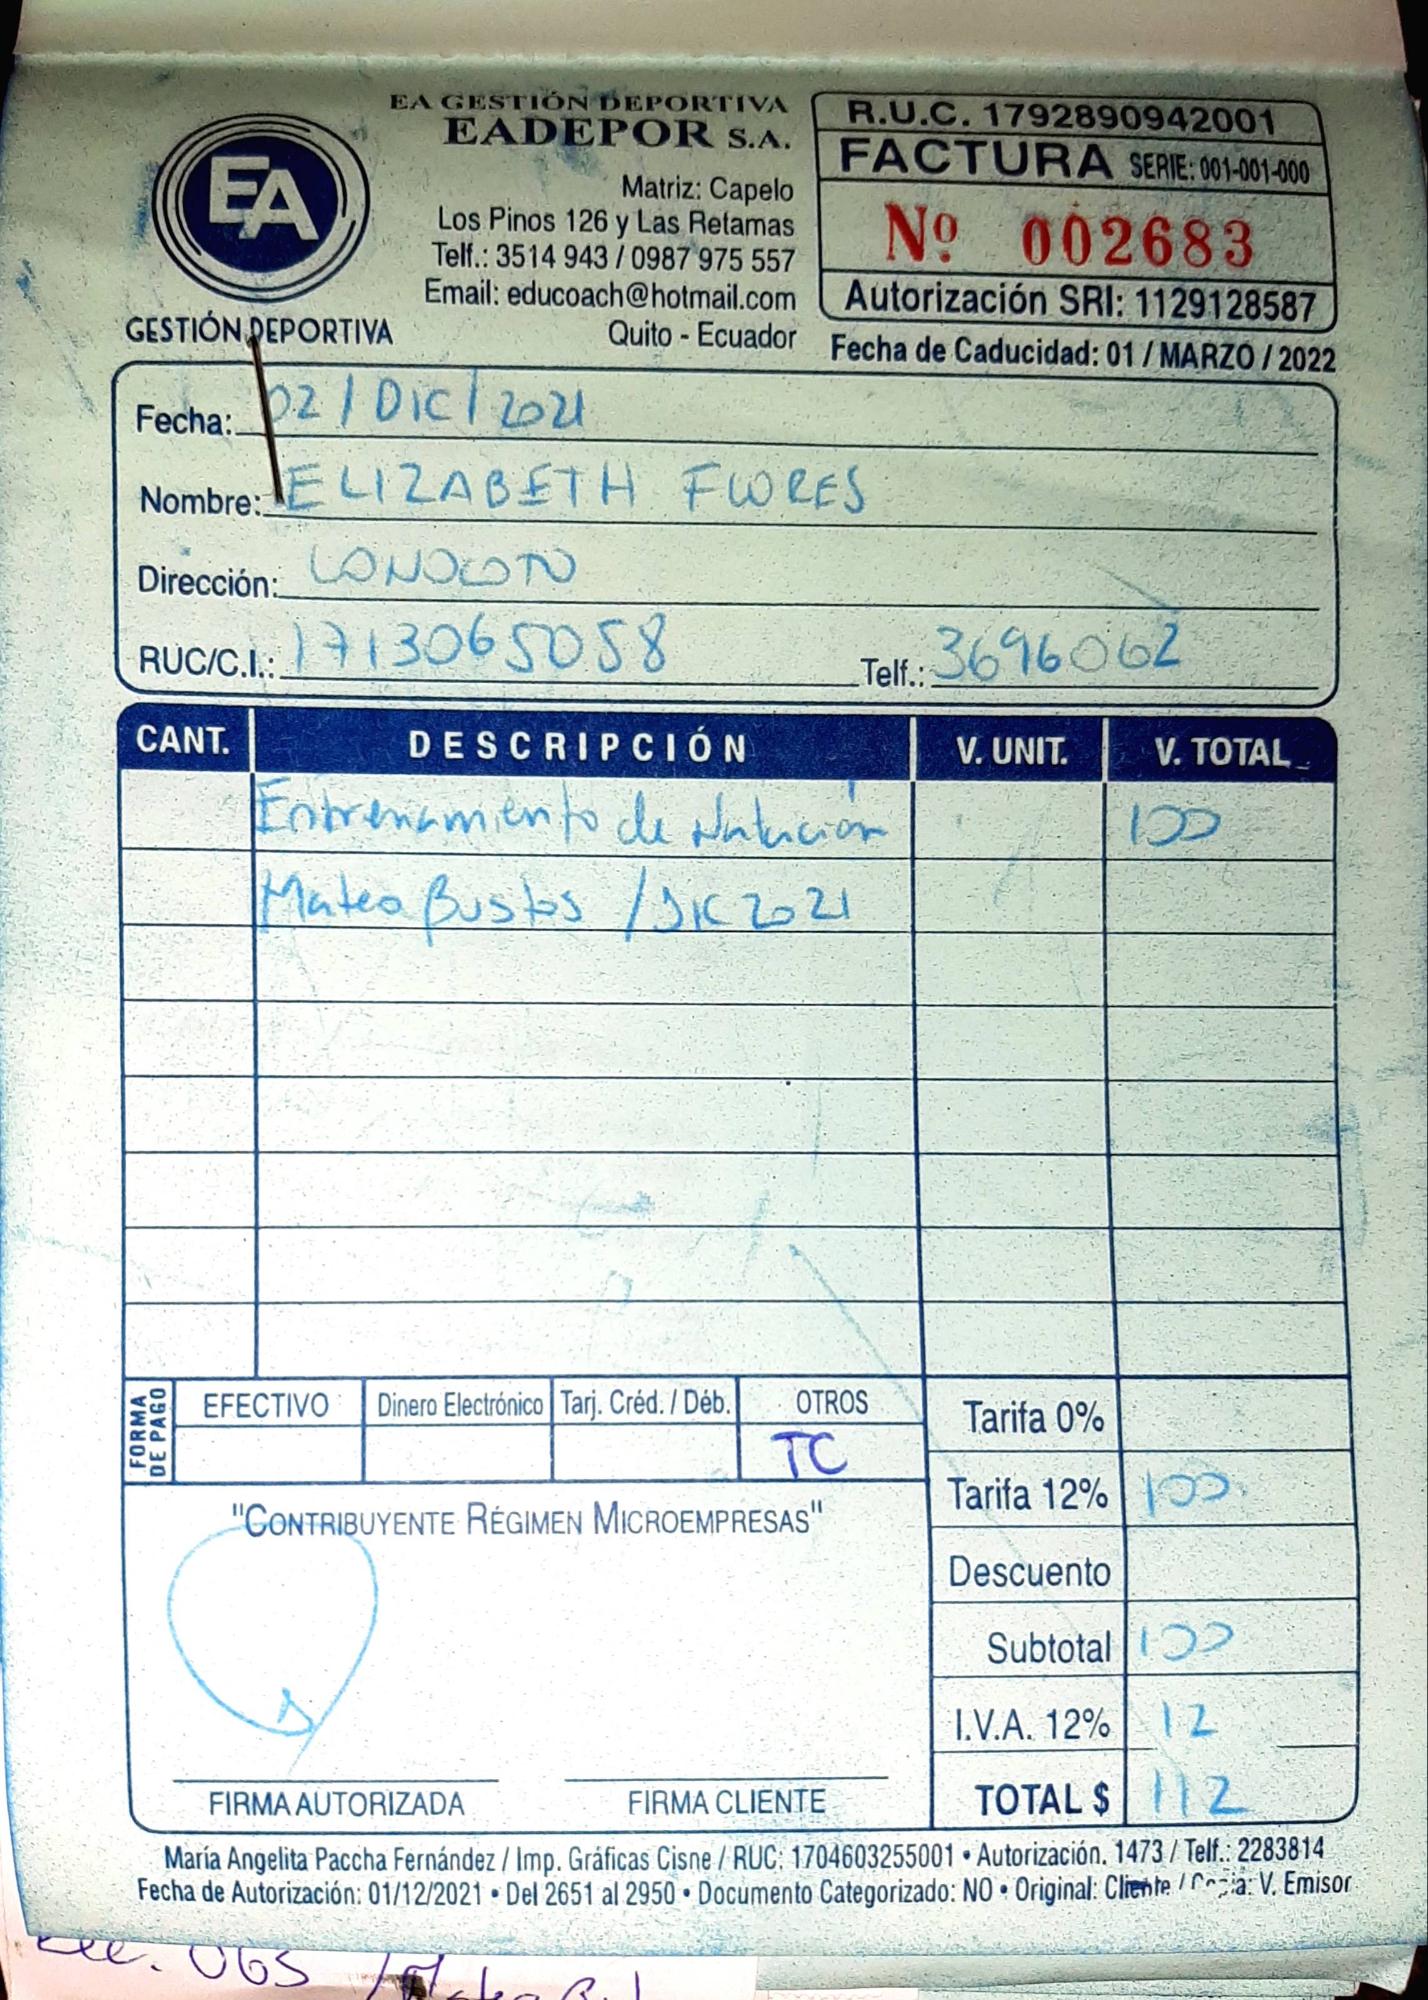 EA GESTIÓN DEPORTIVA
EADEPOR S.A.
EA
GESTIÓN DEPORTIVA
Matriz: Capelo
Los Pinos 126 y Las Retamas
Telf.: 3514 943 / 0987 975 557
Email: educoach@hotmail.com
Quito - Ecuador
R.U.C. 1792890942001
FACTURA SERIE: 001-001-000
Nº 002683
Autorización SRI: 1129128587
Fecha de Caducidad: 01 / MARZO / 2022
Fecha: 02 / DIC / 2021
Nombre: ELIZABETH FLORES
Dirección: CONOCOTO
RUC/C.I.: 1713065058 Telf.: 3696062
CANT. DESCRIPCIÓN V. UNIT. V. TOTAL
Entrenamiento de Natación 100
Mateo Bustos / DIC 2021
FORMA DE PAGO
EFECTIVO Dinero Electrónico Tarj. Créd. / Déb. OTROS
TC
Tarifa 0%
Tarifa 12% 100
Descuento
Subtotal 100
I.V.A. 12% 12
TOTAL $ 112
"CONTRIBUYENTE RÉGIMEN MICROEMPRESAS"
FIRMA AUTORIZADA FIRMA CLIENTE
María Angelita Paccha Fernández / Imp. Gráficas Cisne / RUC: 1704603255001 • Autorización. 1473 / Telf.: 2283814
Fecha de Autorización: 01/12/2021 • Del 2651 al 2950 • Documento Categorizado: NO • Original: Cliente / Copia: V. Emisor
065